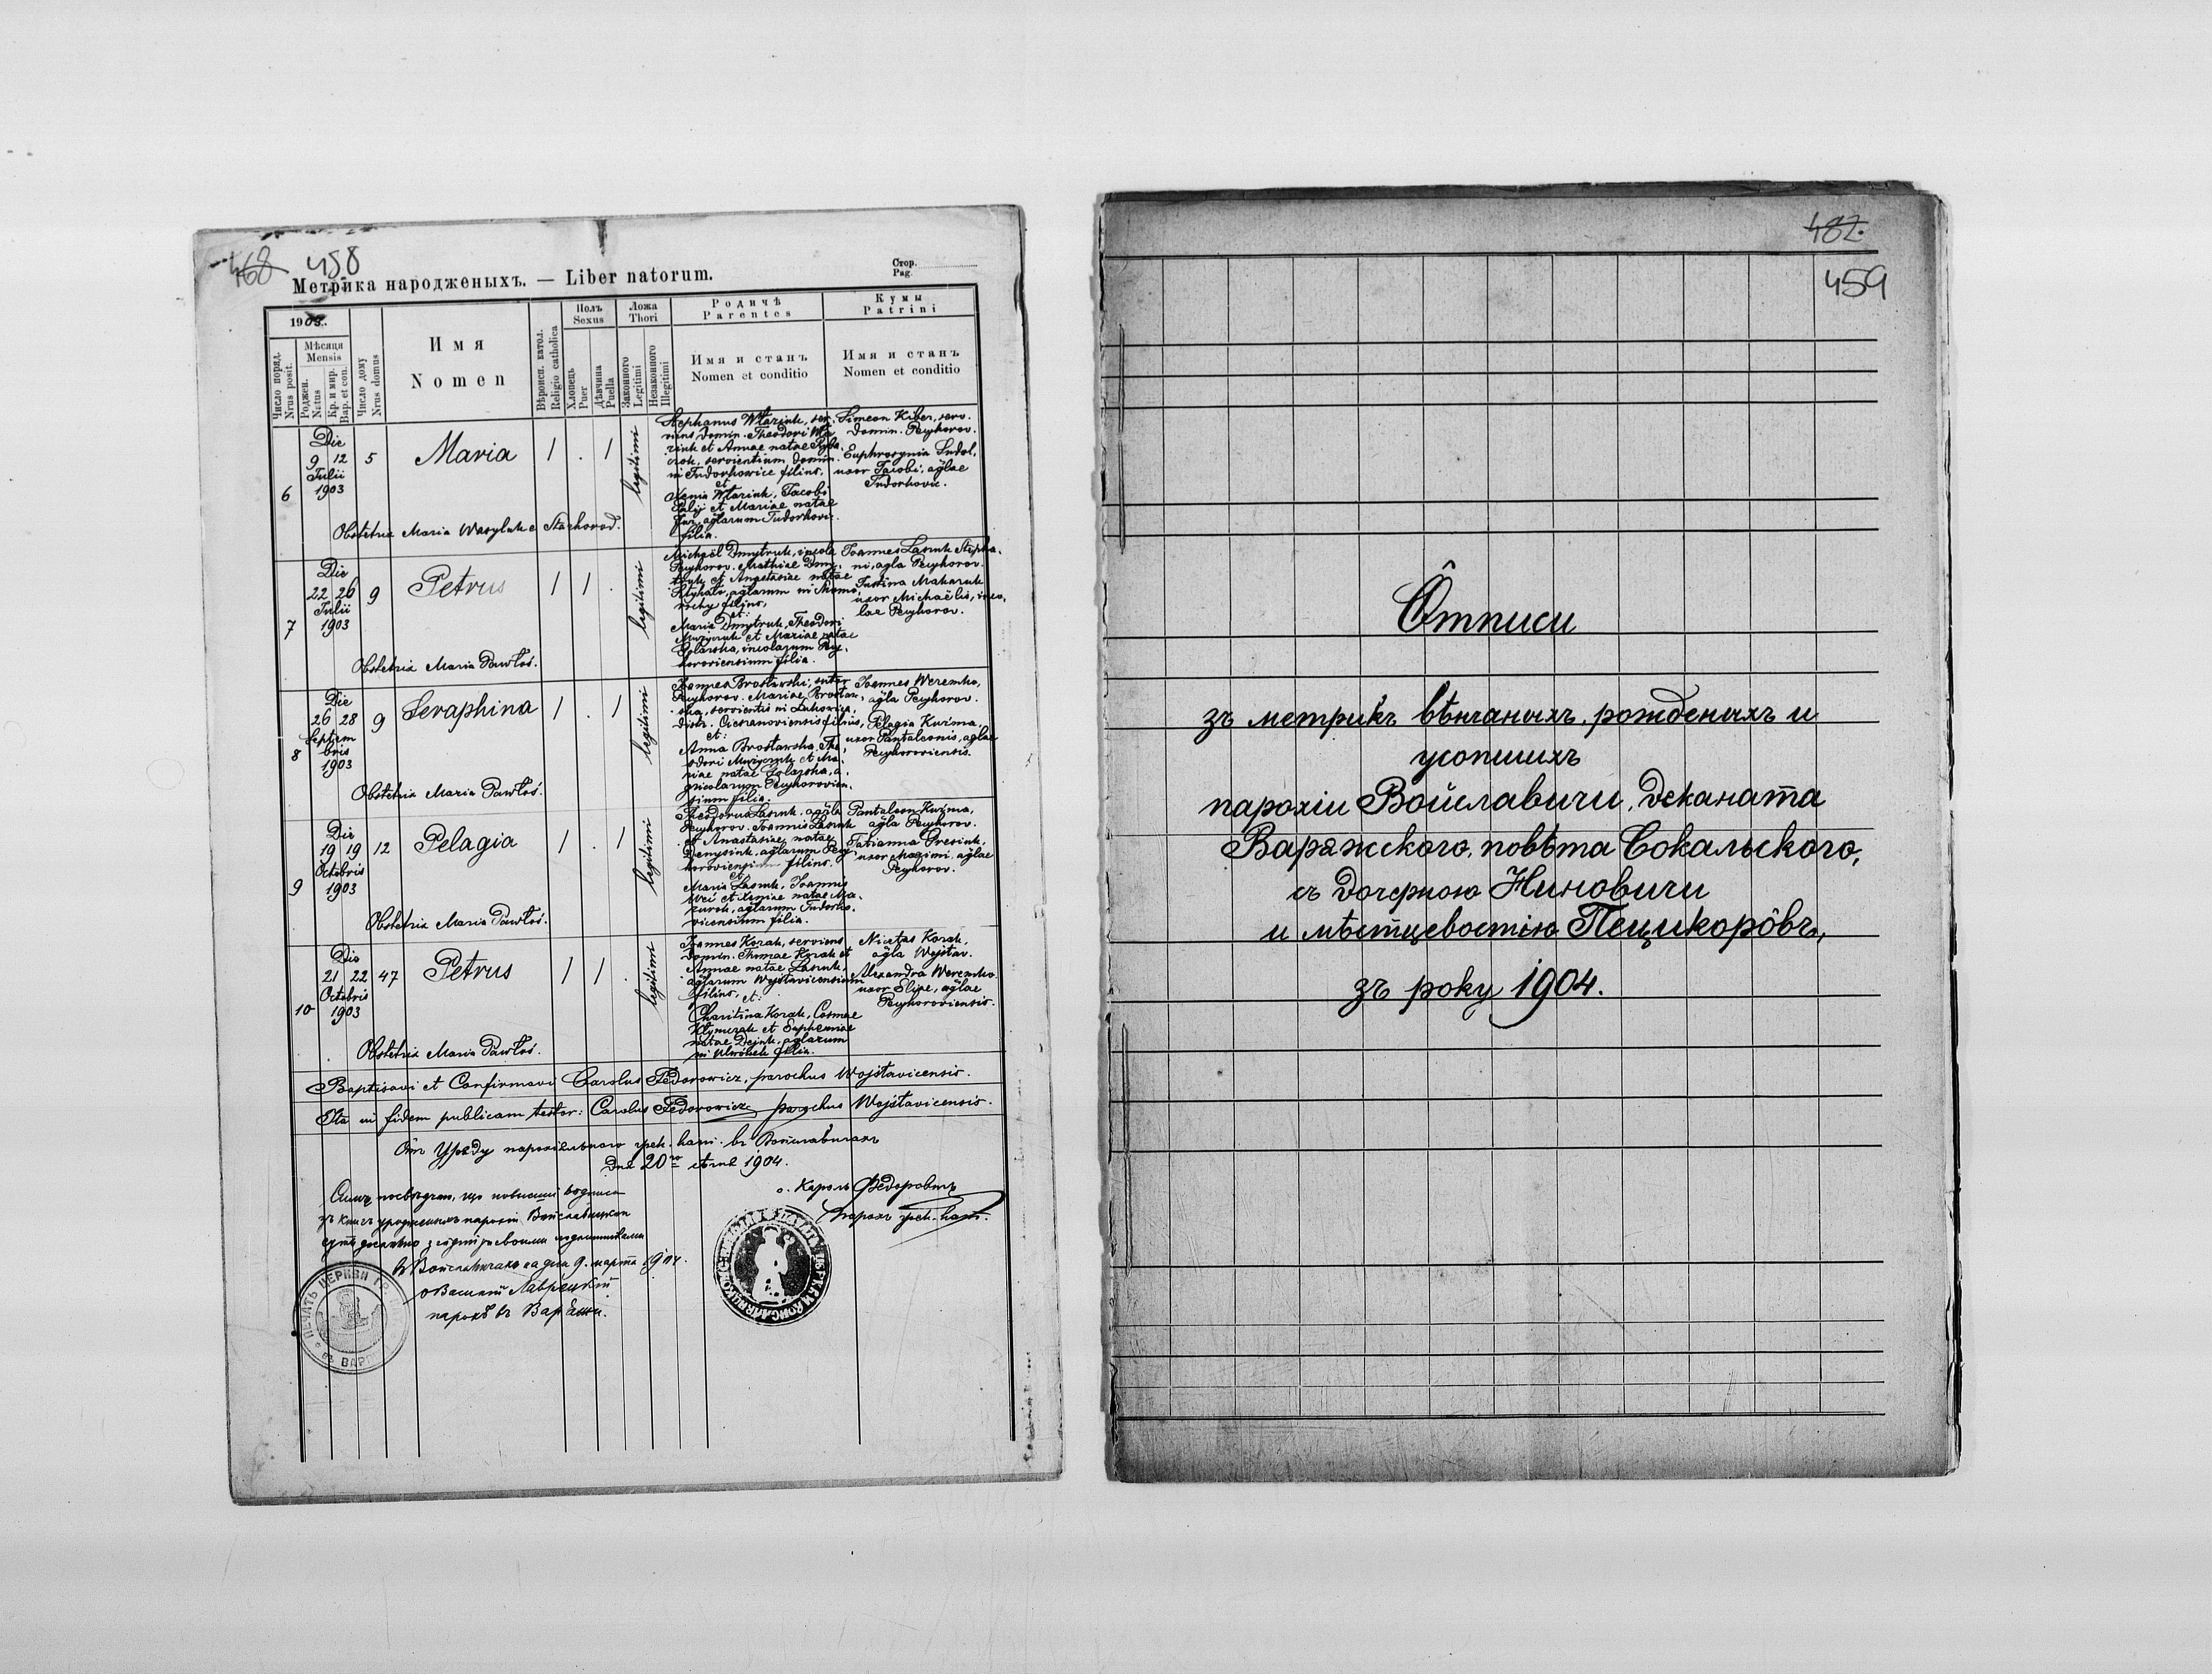 468 458
Метрика народженыхъ. — Liber natorum.
Стор.
Pag.
1903.
Число поряд.
Nrus posit.
Мѣсяця
Mensis
Роджен.
Natus
Кр. и мир.
Bap. et con.
Число дому
Nrus domus
Имя
Nomen
Вѣроисп. катол.
Religio catholica
Полъ
Sexus
Хлопець
Puer
Дѣвчина
Puella
Ложа
Thori
Законного
Legitimi
Незаконного
Illegitimi
Родичѣ
Parentes
Имя и станъ
Nomen et conditio
Кумы
Patrini
Имя и станъ
Nomen et conditio
6
Die
9 12
Julii
1903
5
Maria
1 . 1
legitimi
Stephanus Wtarink, ser-
viens domin. Theodori
rink et Annae natae
servientium domin.
in Tudorkowice filius,
et
Xenia Wtarink, Jacobi
et Mariae natae
aglarum Tudorkovi-
filia.
Simeon Kiber, serv.
domin. Peczhorov.
Euphrosynia Sudol,
uxor Jacobi, aglae
Tudorkovic.
Obstetrix Maria Wasyluk e Starhorod.
7
Die
22 26
Julii
1903
9
Petrus
1 1 .
legitimi
Michaël Dmytruk, incola
Peczhorov. Mathiae Dmy-
truk et Anastasiae natae
aglarum in Skomo-
rochy filius,
et:
Maria Dmytruk, Theodori
Muzyczuk et Mariae natae
Polarska, incolarum Pecz-
horoviensium filia.
Joannes Lasiuk Stepha-
ni, agla Peczhorov.
Justina Makaruk
uxor Michaëlis, inco-
lae Peczhorov.
Obstetrix Maria Pawłoś.
8
Die
26 28
Septem
bris
1903
9
Seraphina
1 . 1
legitimi
Joannes Brosławski, sutor
Peczhorov. Mariae Brosław-
ska, servientis in Lukowica,
distr. Cieszanoviensis filius,
et:
Anna Brosławska, The-
odori Muzyczuk et Ma-
riae natae Polarska, a-
gricolarum Peczhorovien-
sium filia.
Joannes Weremko,
agla Peczhorov.
Pelagia Kuzma,
uxor Pantaleonis, aglae
Peczhoroviensis.
Obstetrix Maria Pawłoś.
9
Die
19 19
Octobris
1903
12
Pelagia
1 . 1
legitimi
Theodorus Lasiuk, agla
Peczhorov. Joannis Lasiuk
et Anastasiae natae
Denysiuk, aglarum Pecz-
horoviensium filius.
et
Maria Lasiuk, Joannis
et Xeniae natae Ma-
zurok, aglarum Tudorko-
vicensium filia.
Pantaleon Kuzma,
agla Peczhorov.
Tatianna Presiuk,
uxor Maximi, aglae
Peczhorov.
Obstetrix Maria Pawłoś.
10
Die
21 22
Octobris
1903
47
Petrus
1 1 .
legitimi
Joannes Korak, serviens
domin. Thimae Korak et
Annae natae Lasiuk,
aglarum Wojslavicensium
filius,
et:
Charitina Korak, Cosmae
Klymczuk et Euphemiae
natae Dejnk, aglarum
in Ulwówek filia.
Nicetas Korak,
agla Wojslav.
Alexandra Weremko
uxor Eliae, aglae
Peczhoroviensis.
Obstetrix Maria Pawłoś.
Baptisavi et Confirmavi Carolus Fedorowicz, parochus Wojslavicensis.
Ita in fidem publicam testor: Carolus Fedorowicz parochus Wojslavicensis.
Отъ Уряду парохіяльного грек. кат. въ Войславичахъ
дня 20го 1904.
о. Кароль Федоровичъ
парохъ грек. кат.
Симъ посвѣдчаю, що повысшiи водписи
зъ книгъ урожденныхъ парохіи Войславицкои
суть дословно згôдни
въ Войславичахъ на дни 9. марта 1904.
о Василій Лаврецкій
парохъ въ Варяжи.
ПЕЧАТЬ ЦЕРКВИ ГР.
482.
459
Ôтписи
зъ метрикъ вѣнчаныхъ, рожденыхъ и
усопшихъ
парохіи Войславичи, деканата
Варяжского, повѣта Сокальского,
съ дочерною Ниновичи
и мѣстцевостію Пецикорôвъ,
зъ року 1904.